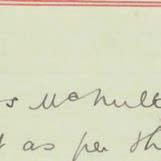 s McNult
t as per th